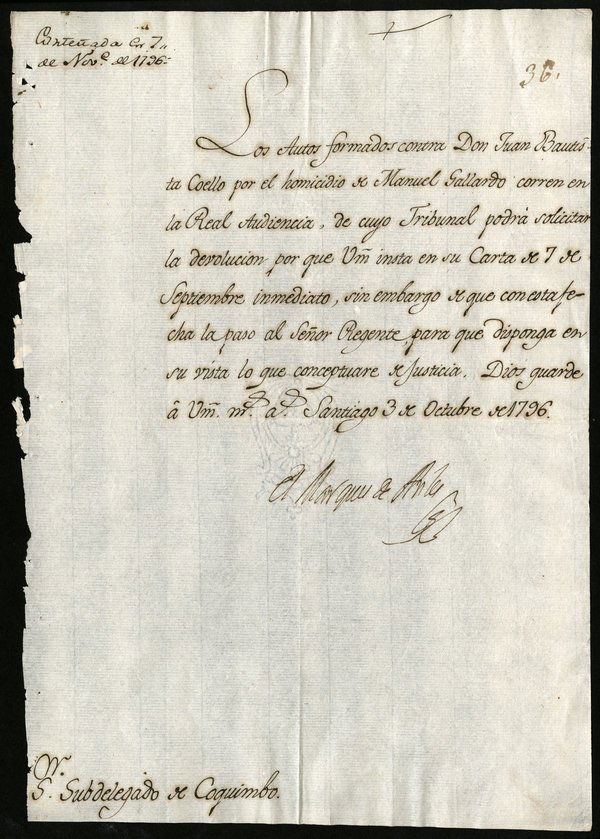 Contextada en 7,,
de Nov.e de 1796=
36.
Los Autos formados contra Don Juan Bautis-
ta Coello por el homicidio de Manuel Gallardo corren en
la Real Audiencia, de cuyo Tribunal podrá solicitar
la devolucion por que Vm̃ insta en su Carta de 7 de
Septiembre inmediato, sin embargo de que con esta fe-
cha la paso al Señor Regente, para que disponga en
su vista lo que conceptuare de Justicia. Dios guarde
â Vm̃. m.s a.s Santiago 3 de Octubre de 1796.
El Marques de Aviles
S.r Subdelegado de Coquimbo.